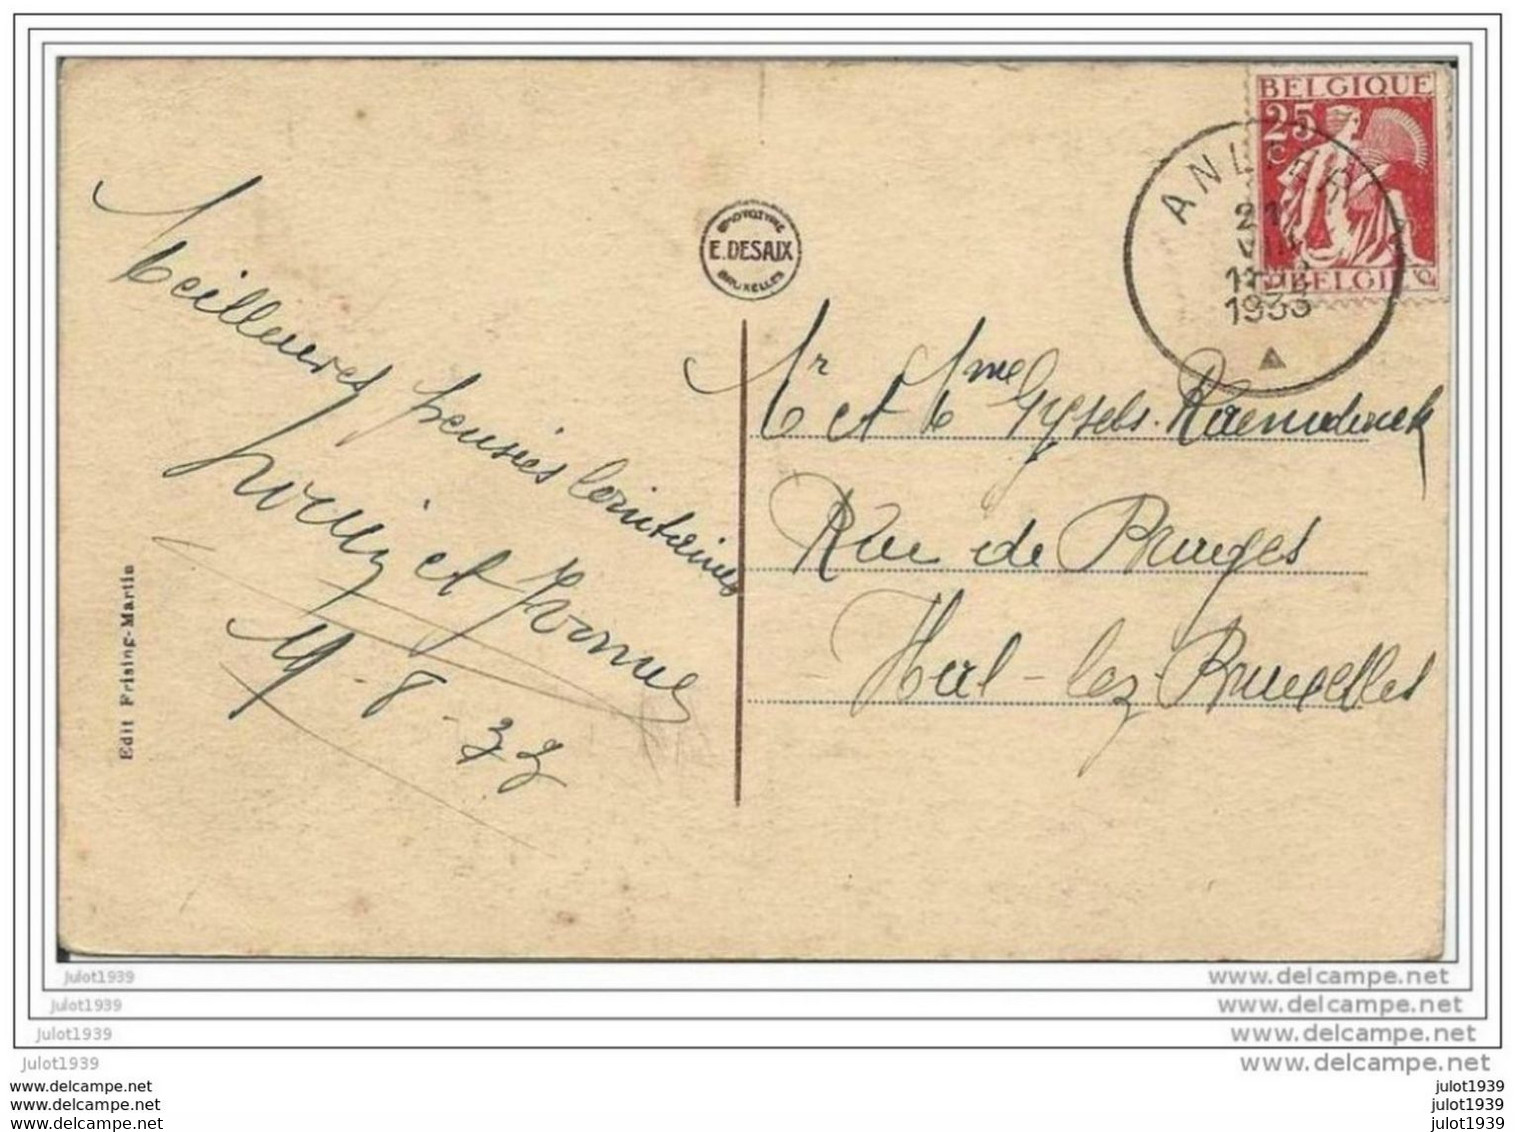 BELGIQUE
25
C
BELGIE
ANLIER
21
VIII
1933
PHOTOTYPIE
E. DESAIX
BRUXELLES
Meilleures pensées lointaines
et Yvonne
19-8-33
Mr et Mme Gysels-
Rue de Bruges
Hal-lez-Bruxelles
Edit Frising-Martin
julot1939
www.delcampe.net
julot1939
www.delcampe.net
julot1939
www.delcampe.net
julot1939
www.delcampe.net
www.delcampe.net
julot1939
www.delcampe.net
julot1939
www.delcampe.net
julot1939